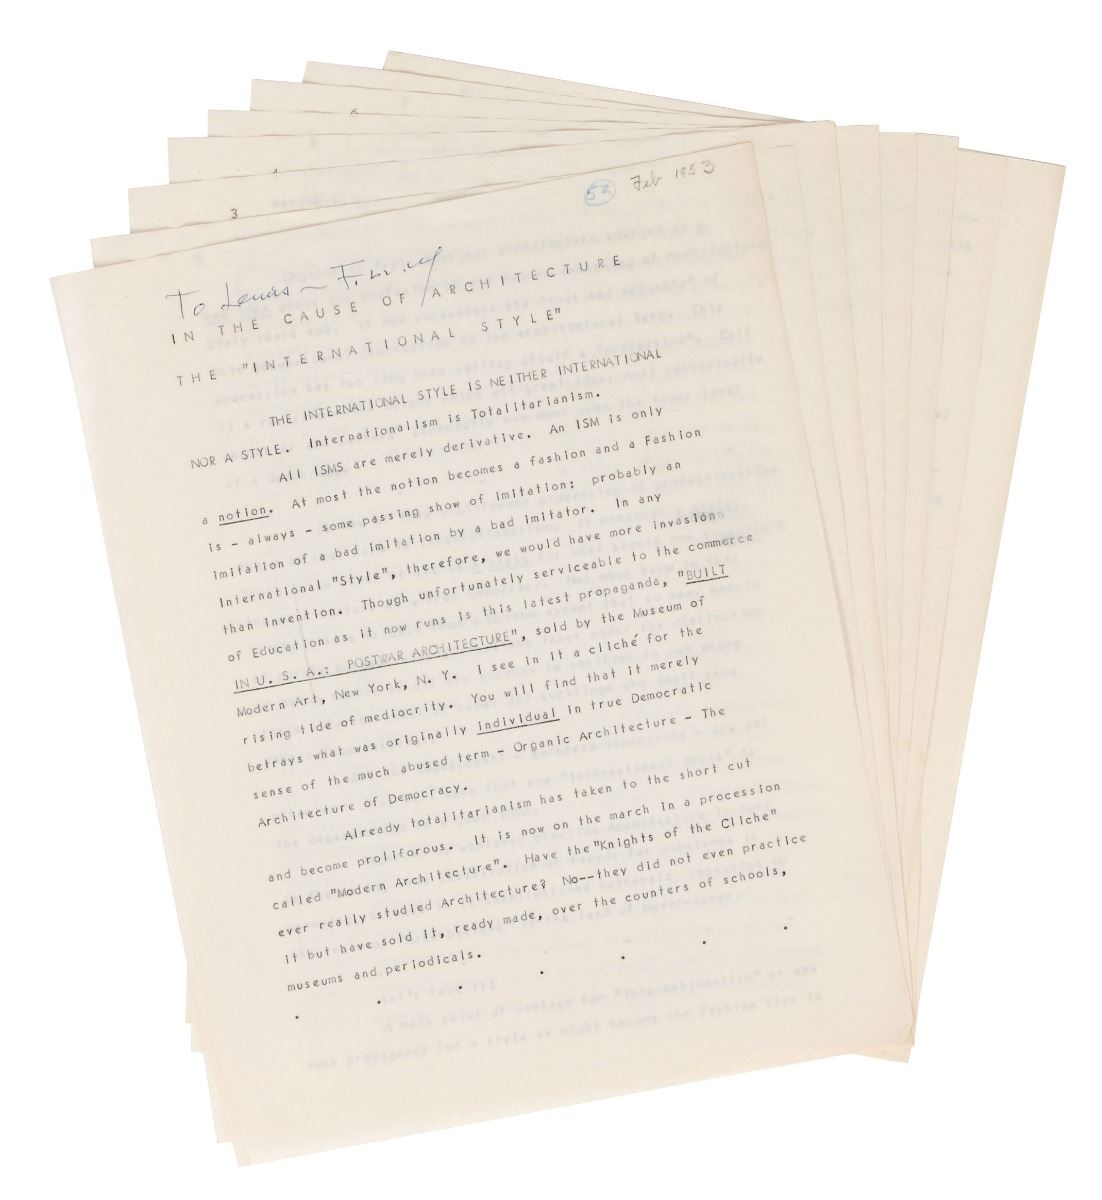 52 Feb 1953
3
To Lewis – F.Ll.W
IN THE CAUSE OF ARCHITECTURE
THE "INTERNATIONAL STYLE"
THE INTERNATIONAL STYLE IS NEITHER INTERNATIONAL
NOR A STYLE. Internationalism is Totalitarianism.
All ISMS are merely derivative. An ISM is only
a notion. At most the notion becomes a fashion and a Fashion
is – always – some passing show of imitation: probably an
imitation of a bad imitation by a bad imitator. In any
International "Style", therefore, we would have more invasion
than invention. Though unfortunately serviceable to the commerce
of Education as it now runs is this latest propaganda, "BUILT
IN U. S. A.: POSTWAR ARCHITECTURE", sold by the Museum of
Modern Art, New York, N. Y. I see in it a cliché for the
rising tide of mediocrity. You will find that it merely
betrays what was originally individual in true Democratic
sense of the much abused term – Organic Architecture – The
Architecture of Democracy.
Already totalitarianism has taken to the short cut
and become proliforous. It is now on the march in a procession
called "Modern Architecture". Have the "Knights of the Cliche"
ever really studied Architecture? No--they did not even practice
it but have sold it, ready made, over the counters of schools,
museums and periodicals.
. . . . . . .